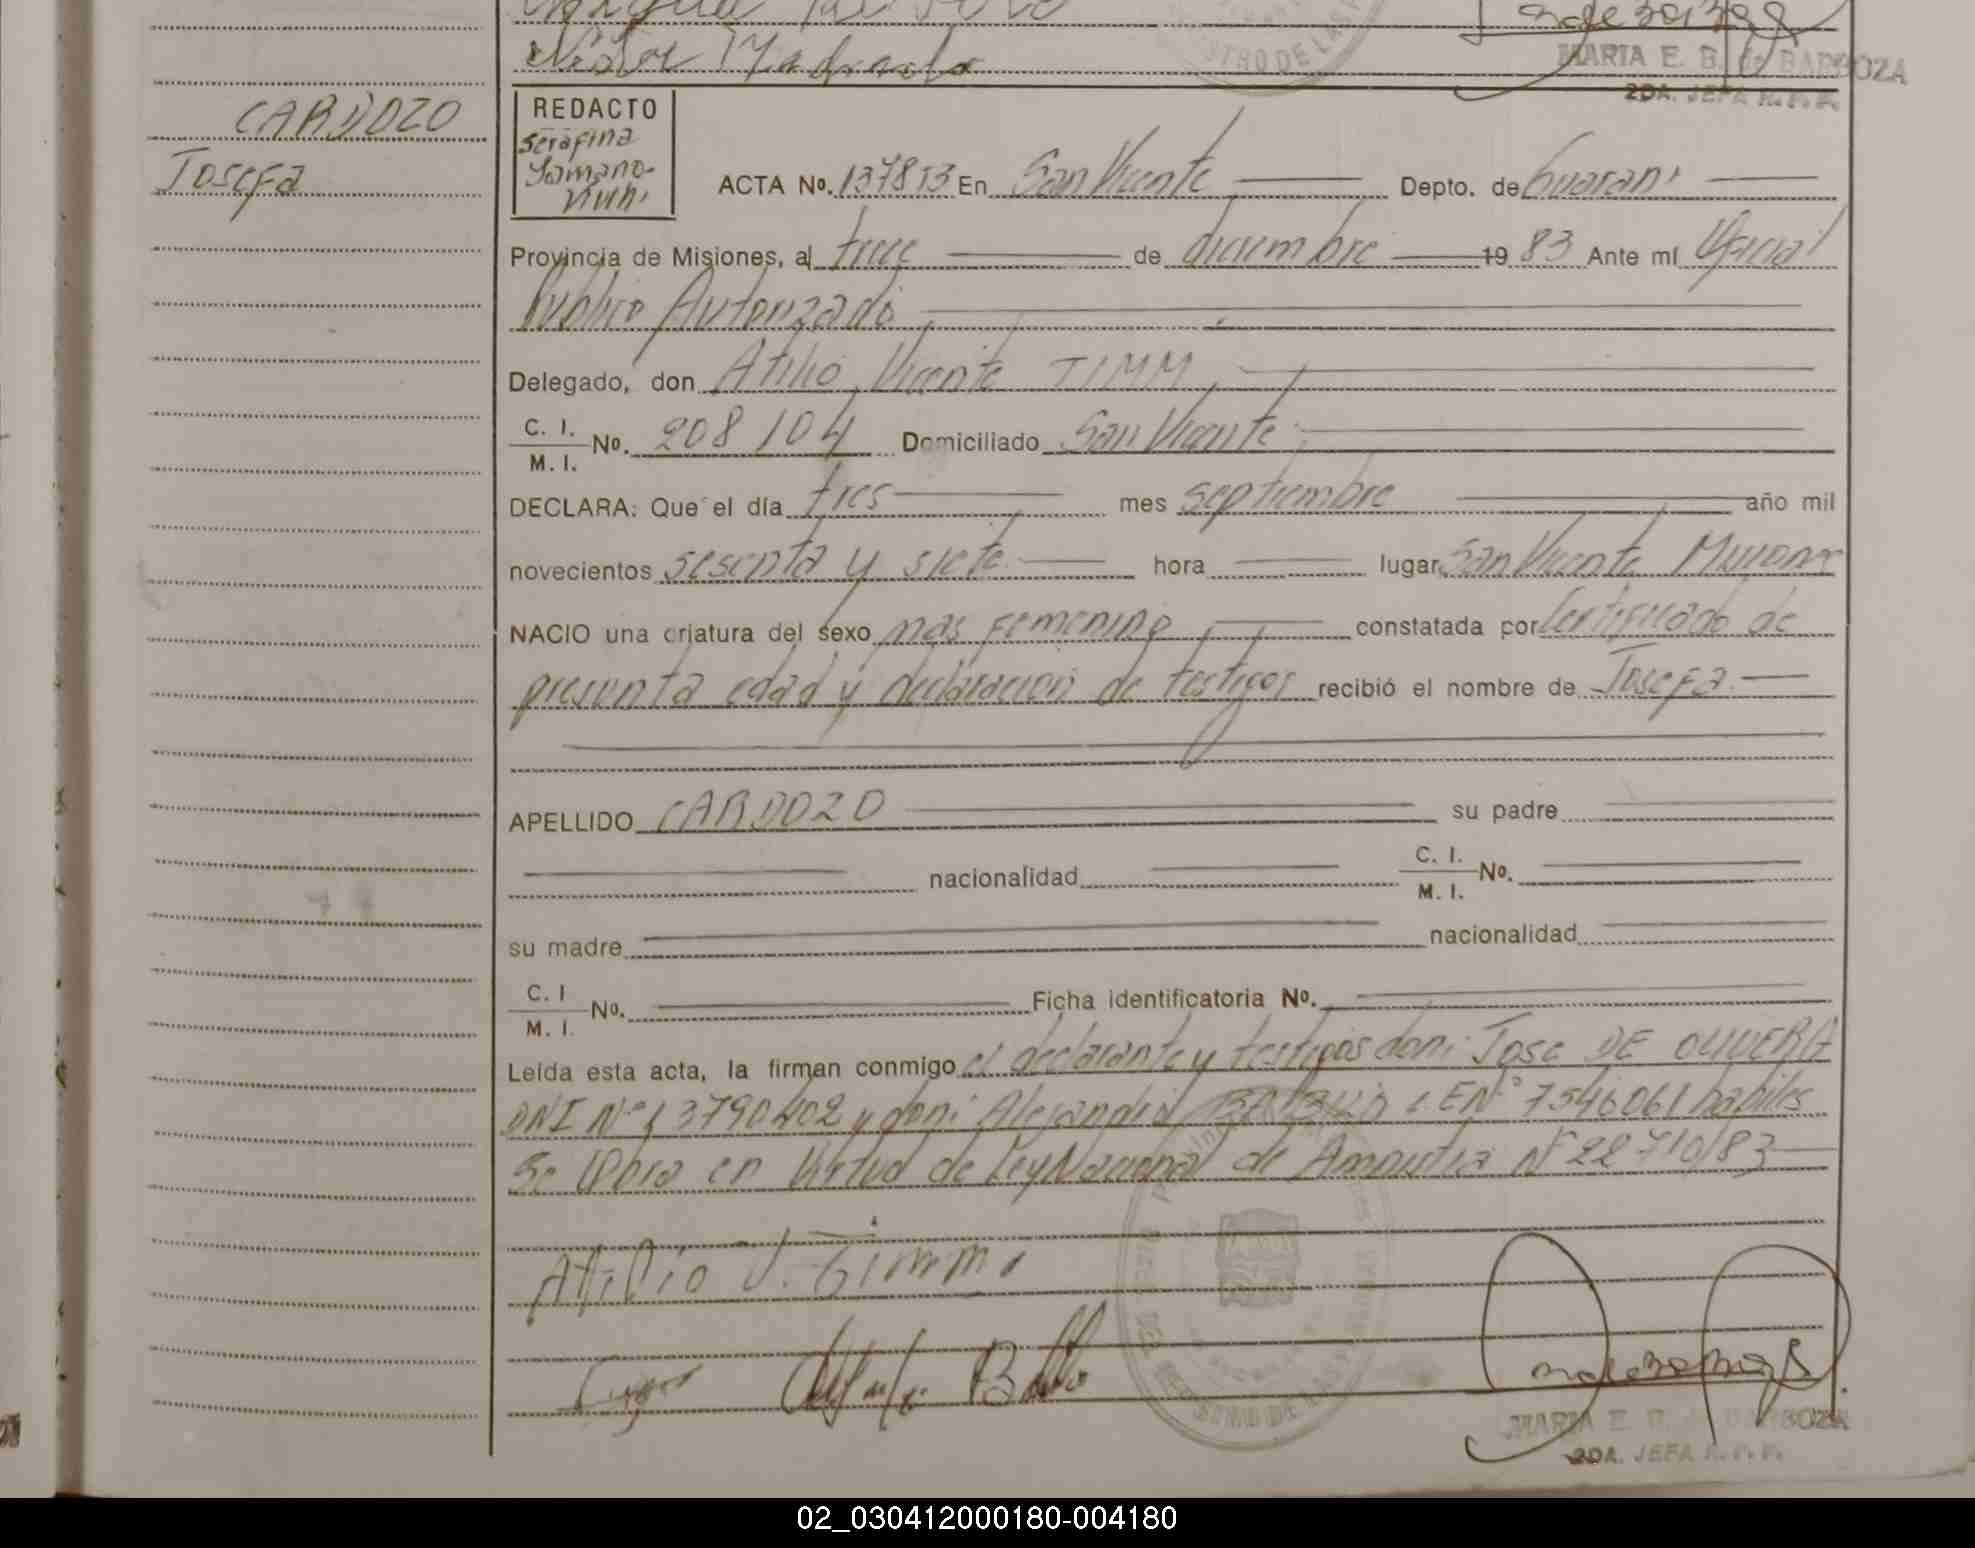 MARIA E. B. de BARBOZA
2DA. JEFA R. P. P.
CARDOZO
Josefa
REDACTO
Serafina
ACTA No. 137813 En San Vicente Depto. de Guarani
Provincia de Misiones, al trece de diciembre 19 83 Ante mí Oficial
Publico Autorizado
Delegado, don Atilio Vicente TIMM
C. I.
M. I. No. 208104 Domiciliado San Vicente
DECLARA: Que el día tres mes septiembre año mil
novecientos sesenta y siete hora lugar San Vicente Misiones
NACIO una criatura del sexo mas femenino constatada por Certificado de
presunta edad y declaracion de testigos recibió el nombre de Josefa
APELLIDO CARDOZO su padre
nacionalidad C. I.
M. I. No.
su madre nacionalidad
C. I
M. I. No. Ficha identificatoria No.
Leída esta acta, la firman conmigo el declarante y testigos don: Jose DE OLIVERA
DNI Nº 13790202 y don: Alejandro L EN° 7546061 habiles
Se Labra en Virtud de Ley Nacional de Amnistia Nº 22710/83
Atilio V. Timm
MARIA E. B. de BARBOZA
2DA. JEFA R. P. P.
02_030412000180-004180